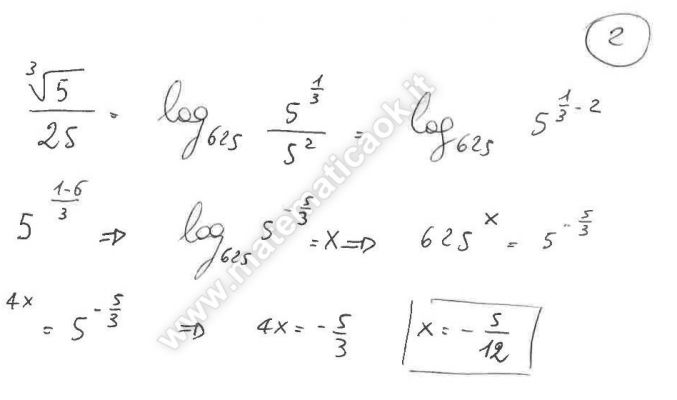 2
∛5 / 25 = log₆₂₅ 5^(1/3) / 5² = log₆₂₅ 5^(1/3 - 2)
5^((1-6)/3) ⇒ log₆₂₅ 5^(-5/3) = x ⇒ 625^x = 5^(-5/3)
4x = 5^(-5/3) ⇒ 4x = -5/3 x = -5/12
www.matematicaok.it